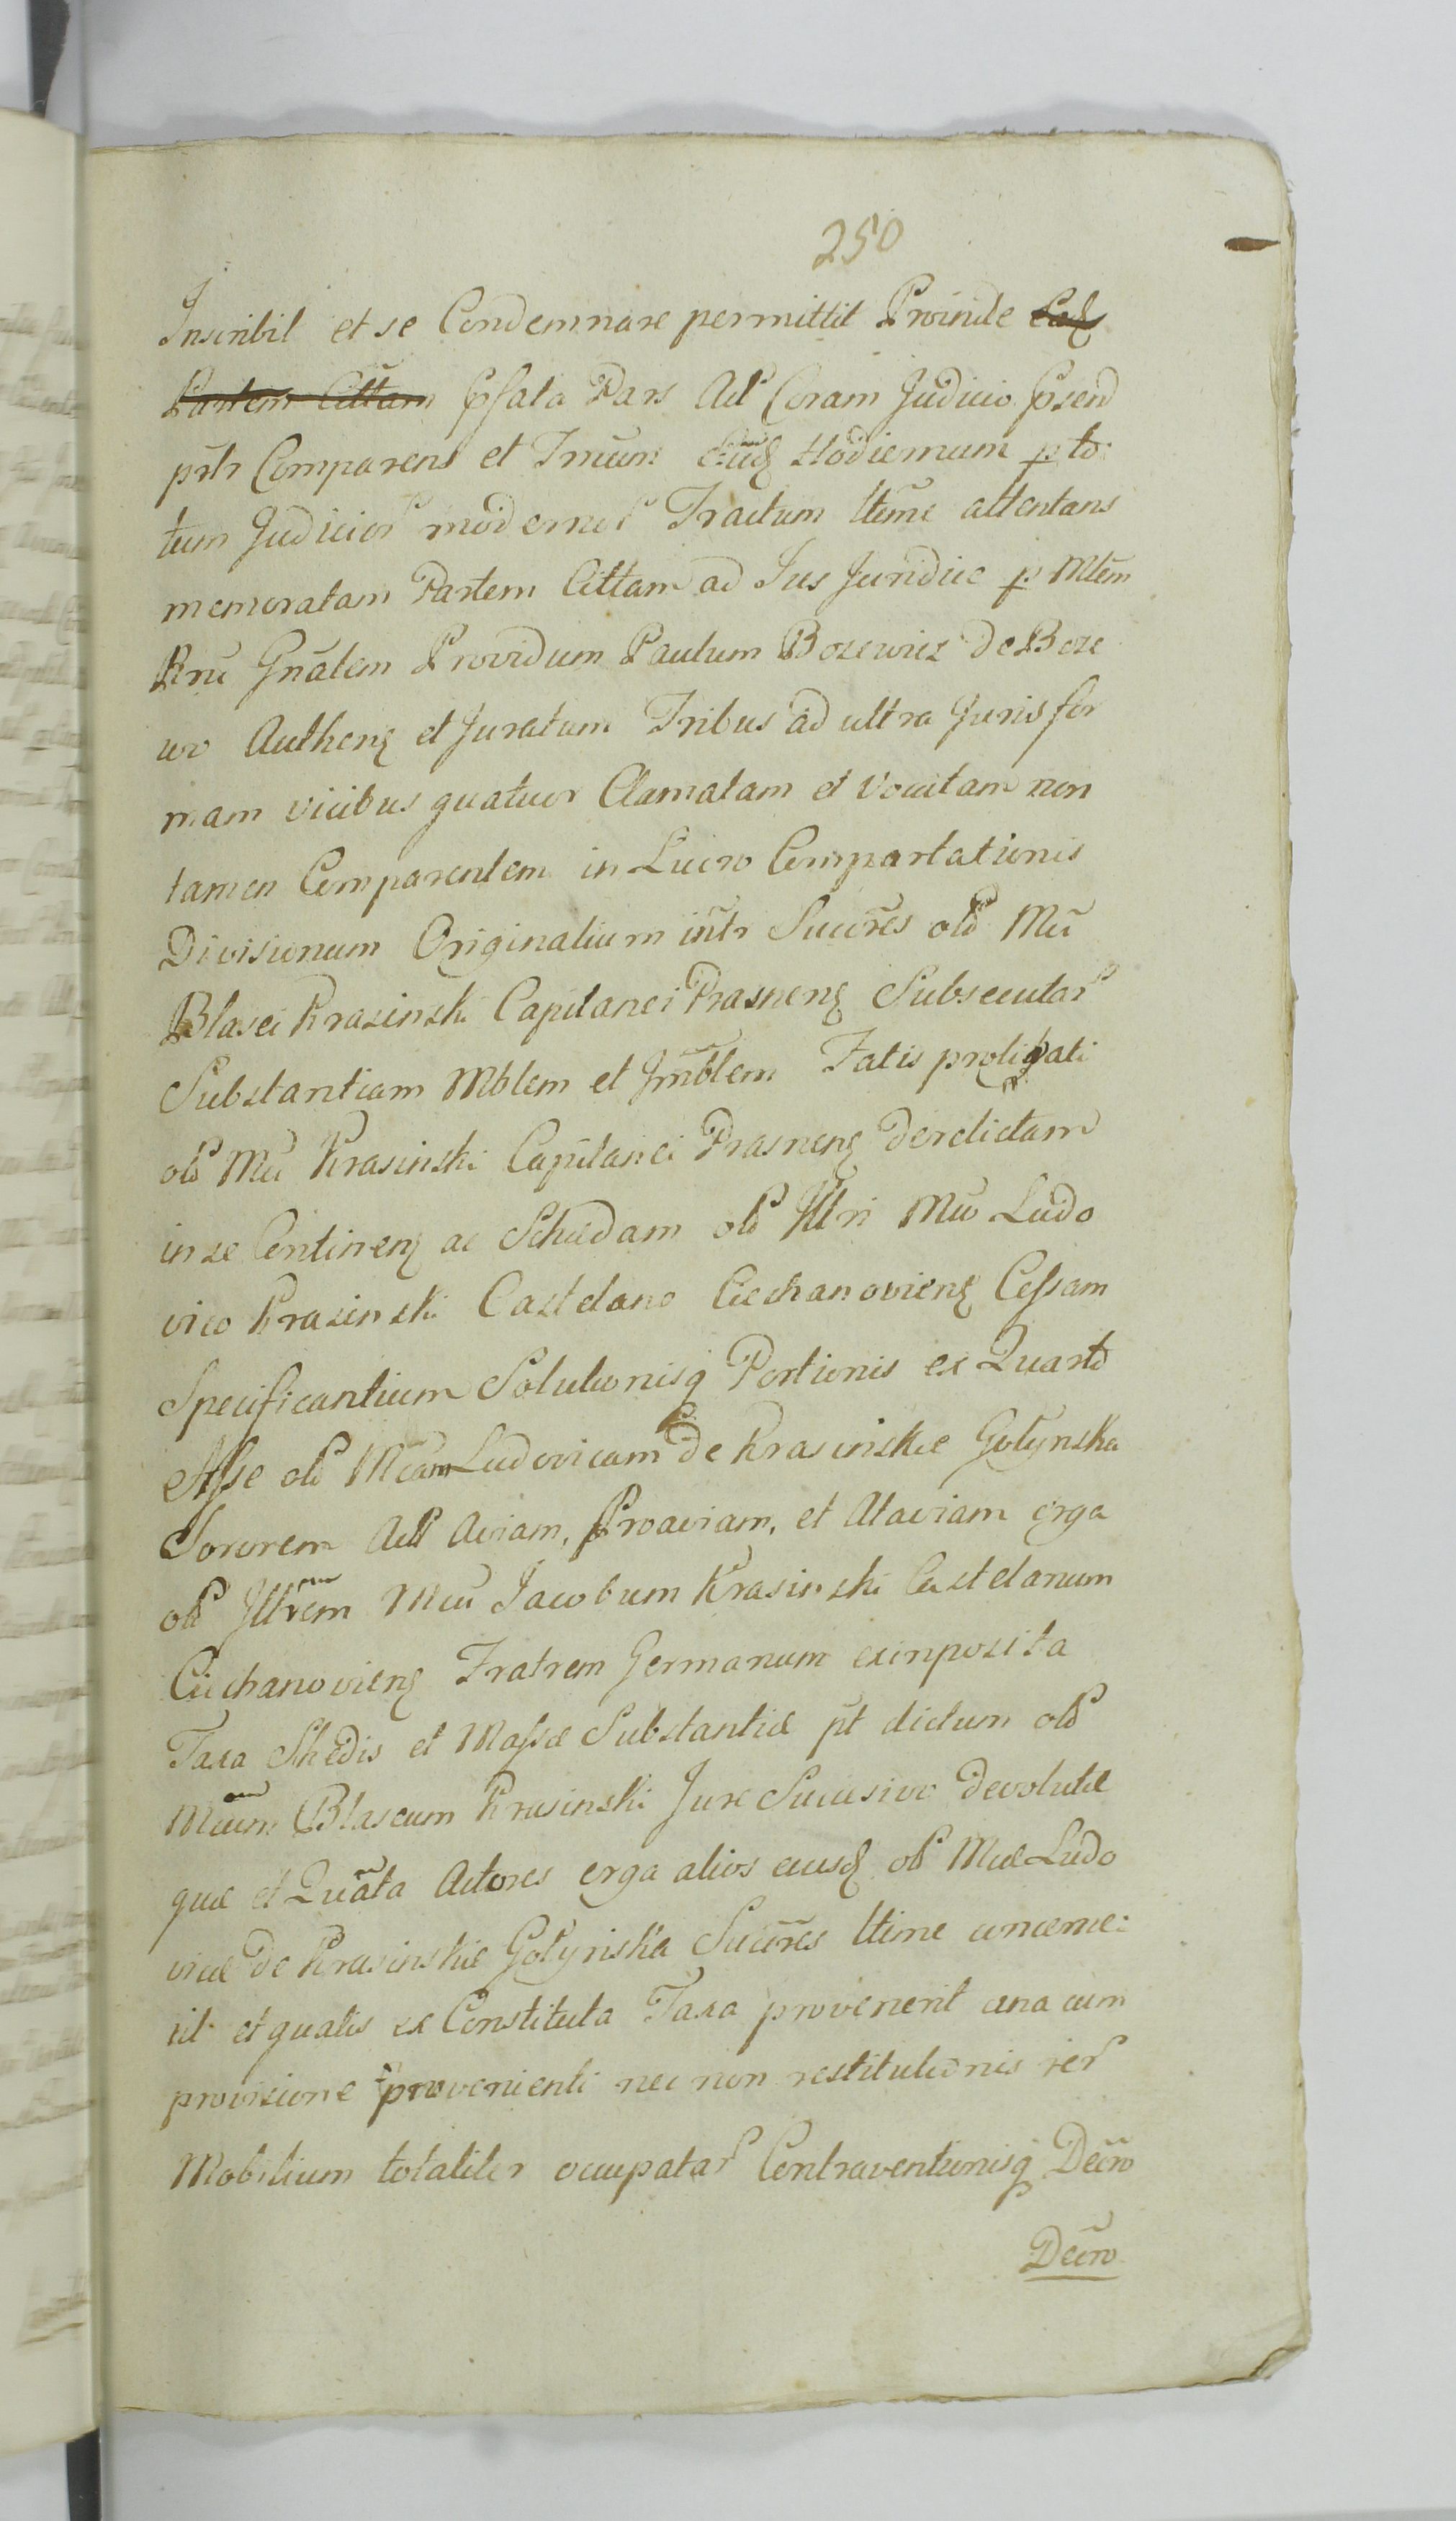 250
Inscribit et se Condemnare permittit Proinde Ead
Partem Cittam Pſata Pars Act Coram Judicio Pſend
pñtr Comparens et Tmũm Ejusd Hodiernum pto:
tum Judicior modernor Tractum ltĩme attentans
memoratam Partem Cittam ad Jus Juridice p Mtem
Rnĩ Gñalem Providum Paulum Bozewicz de Boze
wo Authenᶎ et Juratum Tribus ad ultra Juris for
mam vicibus quatuor Clamatam et vocitam non
tamen Comparentem in Lucro Comportationis
Divisionum Originalium intr Succr̃es olď Mci
Blasei Krasinski Capitanei Prasnenᶎ Subsecutar
Substantiam Mblem et Jm̃blem Fatis profligati
olď Mci Krasinski Capitanei Prasnenᶎ derelictam
in se Continenᶎ ac Schedam olď Jllri Mco Ludo
vico Krasinski Castelano Ciechanovienᶎ Ceſsam
Specificantium Solutionisq Portionis ex Quarto
Aſse olď Mcam Ludovicam de Krasinskie Gołynska
Sororem Act Aviam, Proaviam, et Ataviam erga
olď Jllrem Mcũ Jacobum Krasinski Castelanum
Ciechanovienᶎ Fratrem Germanum ex inposita
Taxa Shedis et Maſsæ Substantiæ pt dictum olď
Mcum Blaseum Krasinski Jure Succesivo devolutæ
quæ et Quãta Actores erga alios eiusd olď Mcæ Ludo
vicæ de Krasinskie Gołynska Succr̃es ltime concerne:
rit et qualis ex Constituta Taxa provenerit una cum
provisione provenienti nec non restitutionis rer
Mobilium totaliter occupatar Contraventionisq Decr̃o
Decr̃o